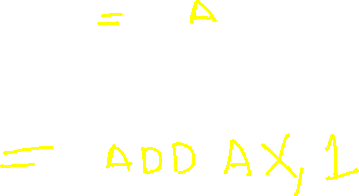 = A
= ADD AX, 1